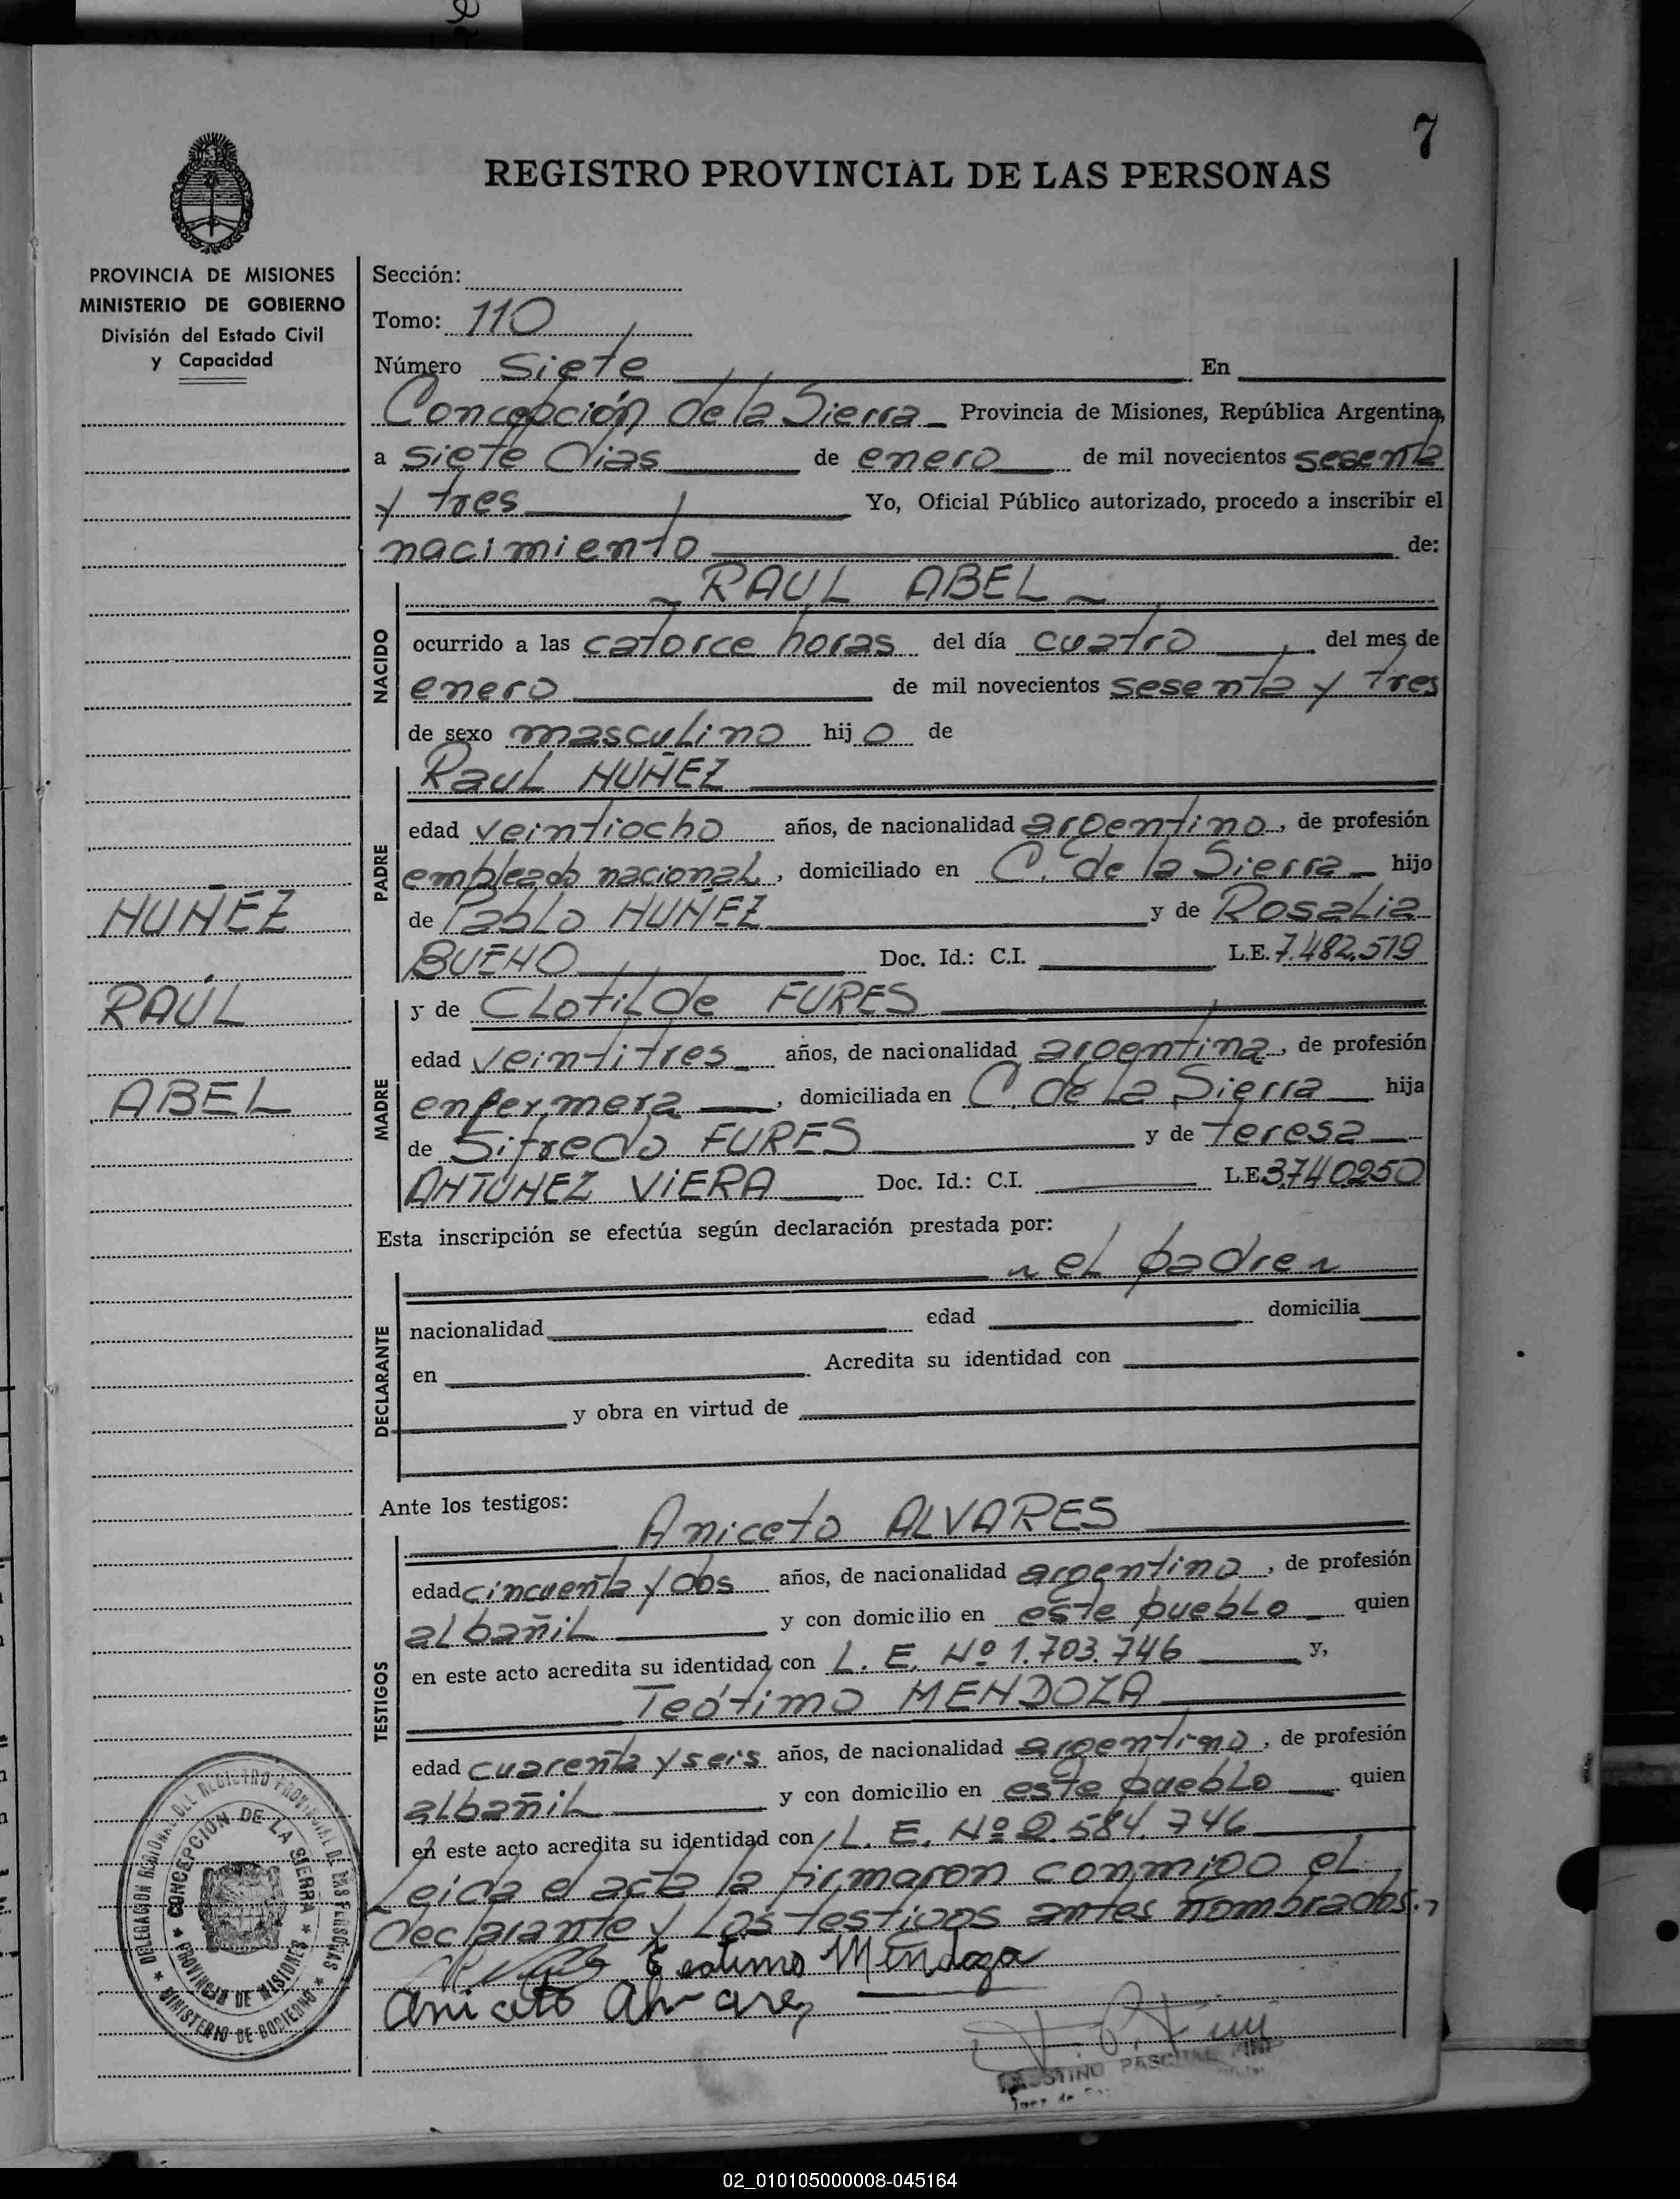 7
REGISTRO PROVINCIAL DE LAS PERSONAS
PROVINCIA DE MISIONES
MINISTERIO DE GOBIERNO
División del Estado Civil
y Capacidad
NUÑEZ
RAÚL
ABEL
Sección:
Tomo: 110
Número siete En
Concepción de la Sierra Provincia de Misiones, República Argentina,
a siete días de enero de mil novecientos sesenta
y tres Yo, Oficial Público autorizado, procedo a inscribir el
nacimiento de:
RAUL ABEL
NACIDO
ocurrido a las catorce horas del día cuatro del mes de
enero de mil novecientos sesenta y tres
de sexo masculino hijo de
PADRE
Raul NUÑEZ
edad veintiocho años, de nacionalidad argentino, de profesión
empleado nacional, domiciliado en C. de la Sierra hijo
de Pablo NUÑEZ y de Rosalia
BUENO Doc. Id.: C.I. L.E. 7.482.519
MADRE
y de Clotilde FURES
edad veintitres años, de nacionalidad argentina, de profesión
enfermera, domiciliada en C. de la Sierra hija
de Sifredo FURES y de teresa
ANTUNEZ VIERA Doc. Id.: C.I. L.E. 3.740.250
Esta inscripción se efectúa según declaración prestada por:
el padre
DECLARANTE
nacionalidad edad domicilia
en Acredita su identidad con
y obra en virtud de
Ante los testigos:
Aniceto ALVARES
TESTIGOS
edad cincuenta y dos años, de nacionalidad argentino, de profesión
albañil y con domicilio en este pueblo quien
en este acto acredita su identidad con L. E. Nº 1.703.746 y,
Teótimo MENDOZA
edad cuarenta y seis años, de nacionalidad argentino, de profesión
albañil y con domicilio en este pueblo quien
en este acto acredita su identidad con L. E. Nº 2.584.746
Leida el acta la firmaron conmigo el
declarante y los testigos antes nombrados.
Teotimo Mendoza
Aniceto Alvarez
PASCUAL PINI
DELEGACION REGIONAL DEL REGISTRO PROVINCIAL DE LAS PERSONAS
MINISTERIO DE GOBIERNO
CONCEPCION DE LA SIERRA
PROVINCIA DE MISIONES
02_010105000008-045164